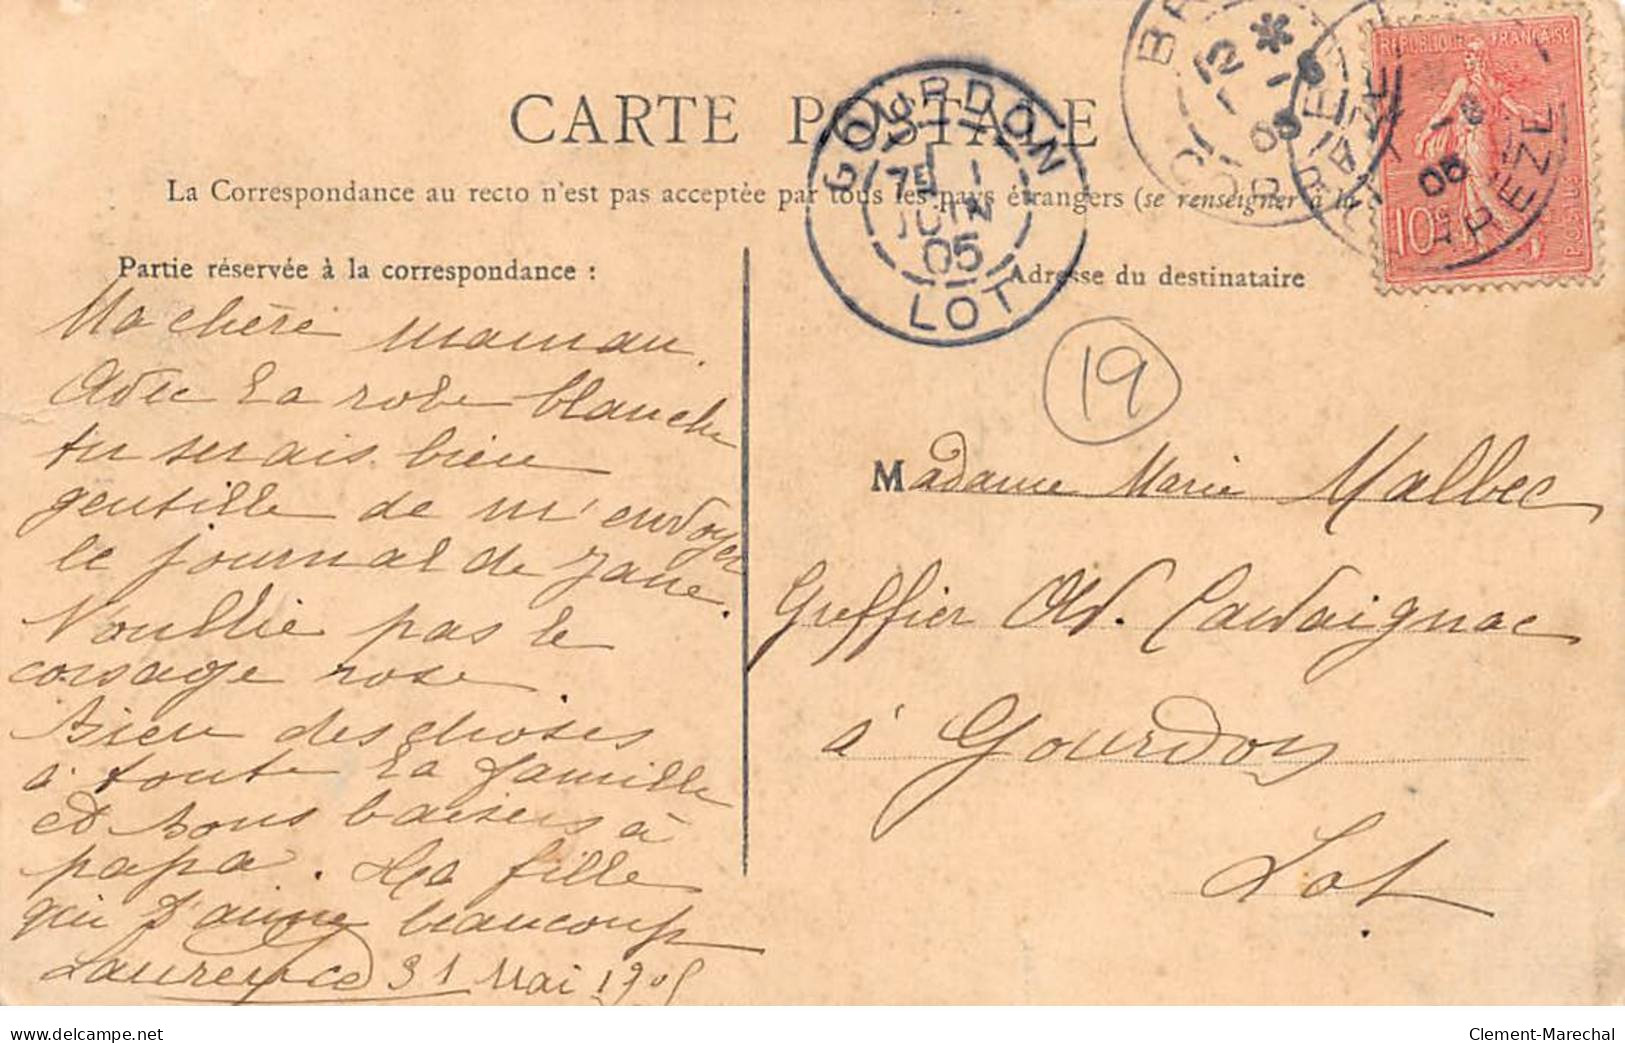 CARTE POSTALE
La Correspondance au recto n'est pas acceptée par tous les pays étrangers (se renseigner à la
Partie réservée à la correspondance :
Adresse du destinataire
RÉPUBLIQUE FRANÇAISE
10c
POSTES
GOURDON
7E
1
JUIN
05
LOT
BR
CORRÈZE
05
19
Ma chère maman.
Avec la robe blanche
tu serais bien
gentille de m'envoyer
le journal de Jane.
N'oublie pas le
corsage rose.
Bien des choses
à toute la famille
et bons baisers à
papa. Ta fille
qui t'aime beaucoup
Laurence 31 Mai 1905
Madame Marie Malbec
Greffier Av. Cavaignac
à Gourdon
Lot
delcampe.net
Clement-Marechal